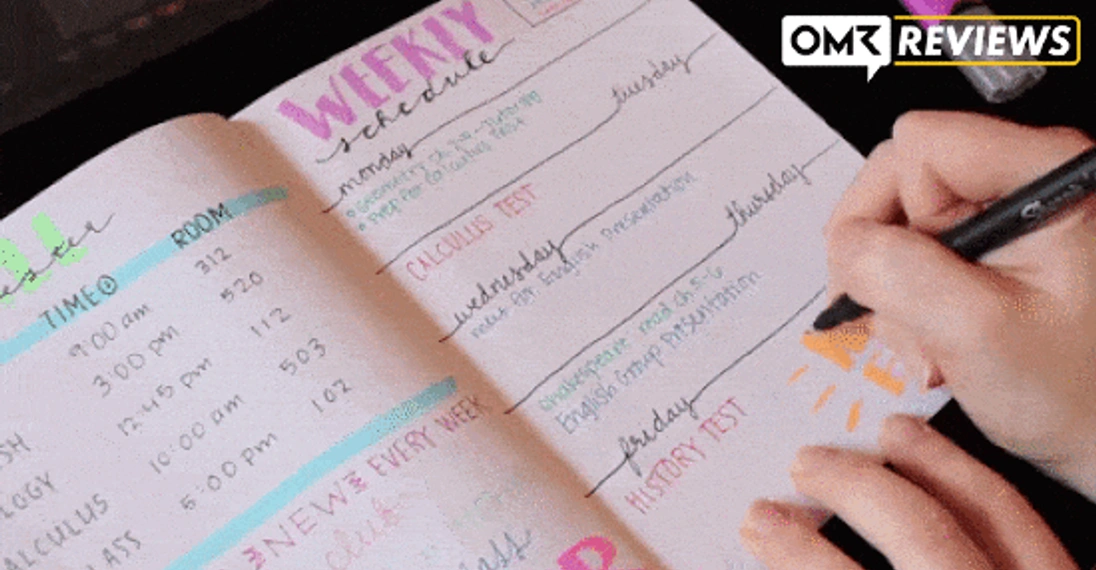 OMR REVIEWS
TIME
ROOM
9:00 am
312
3:00 pm
520
12:45 pm
112
10:00 am
503
5:00 pm
102
ALCULUS
NEW EVERY WEEK
club
WEEKLY
schedule
monday
• prep for Calculus test
tuesday
CALCULUS TEST
wednesday
meet for English Presentation
thursday
Shakespeare read ch 5-6
English Group Presentation
friday
HISTORY TEST